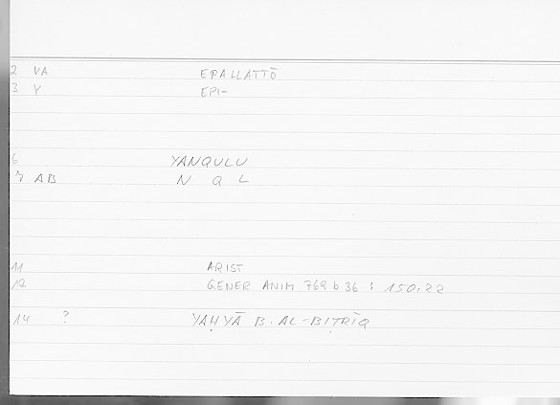 2 VA EPALLATTŌ
3 Y EPI-
6 YANQULU
7 AB N Q L
11 ARIST
12 GENER ANIM 769 b 36 : 150.22
14 ? YAḤYĀ B. AL-BIṬRĪQ